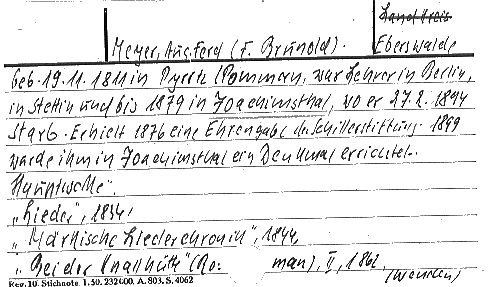 Land Kreis
Meyer, Aug. Ferd (F. Brunold). Eberswalde
geb. 19.11.1811 in Pyritz (Pommern, war Lehrer in Berlin,
in Stettin und bis 1879 in Joachimsthal, wo er 27.2.1894
starb. Erhielt 1876 eine Ehrengabe der Schillerstiftung. 1899
wurde ihm in Joachimsthal ein Denkmal errichtet.
Hauptwerke:
„Lieder", 1834,
„Märkische Liederchronik", 1844,
„Bei der (Ro: man), II, 1862
Reg. 10. Stichnote. 1.50. 232000. A. 803. S. 4062